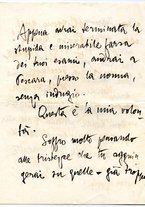 Appena avrai terminata la
stupida e miserabile farsa
dei tuoi esami, andrai a
Pescara, presso la nonna,
senza indugio.
Questa è la mia volon-
tà.
Soffro molto pensando
alle tristezze che tu aggiun-
gerai su quelle - già troppo